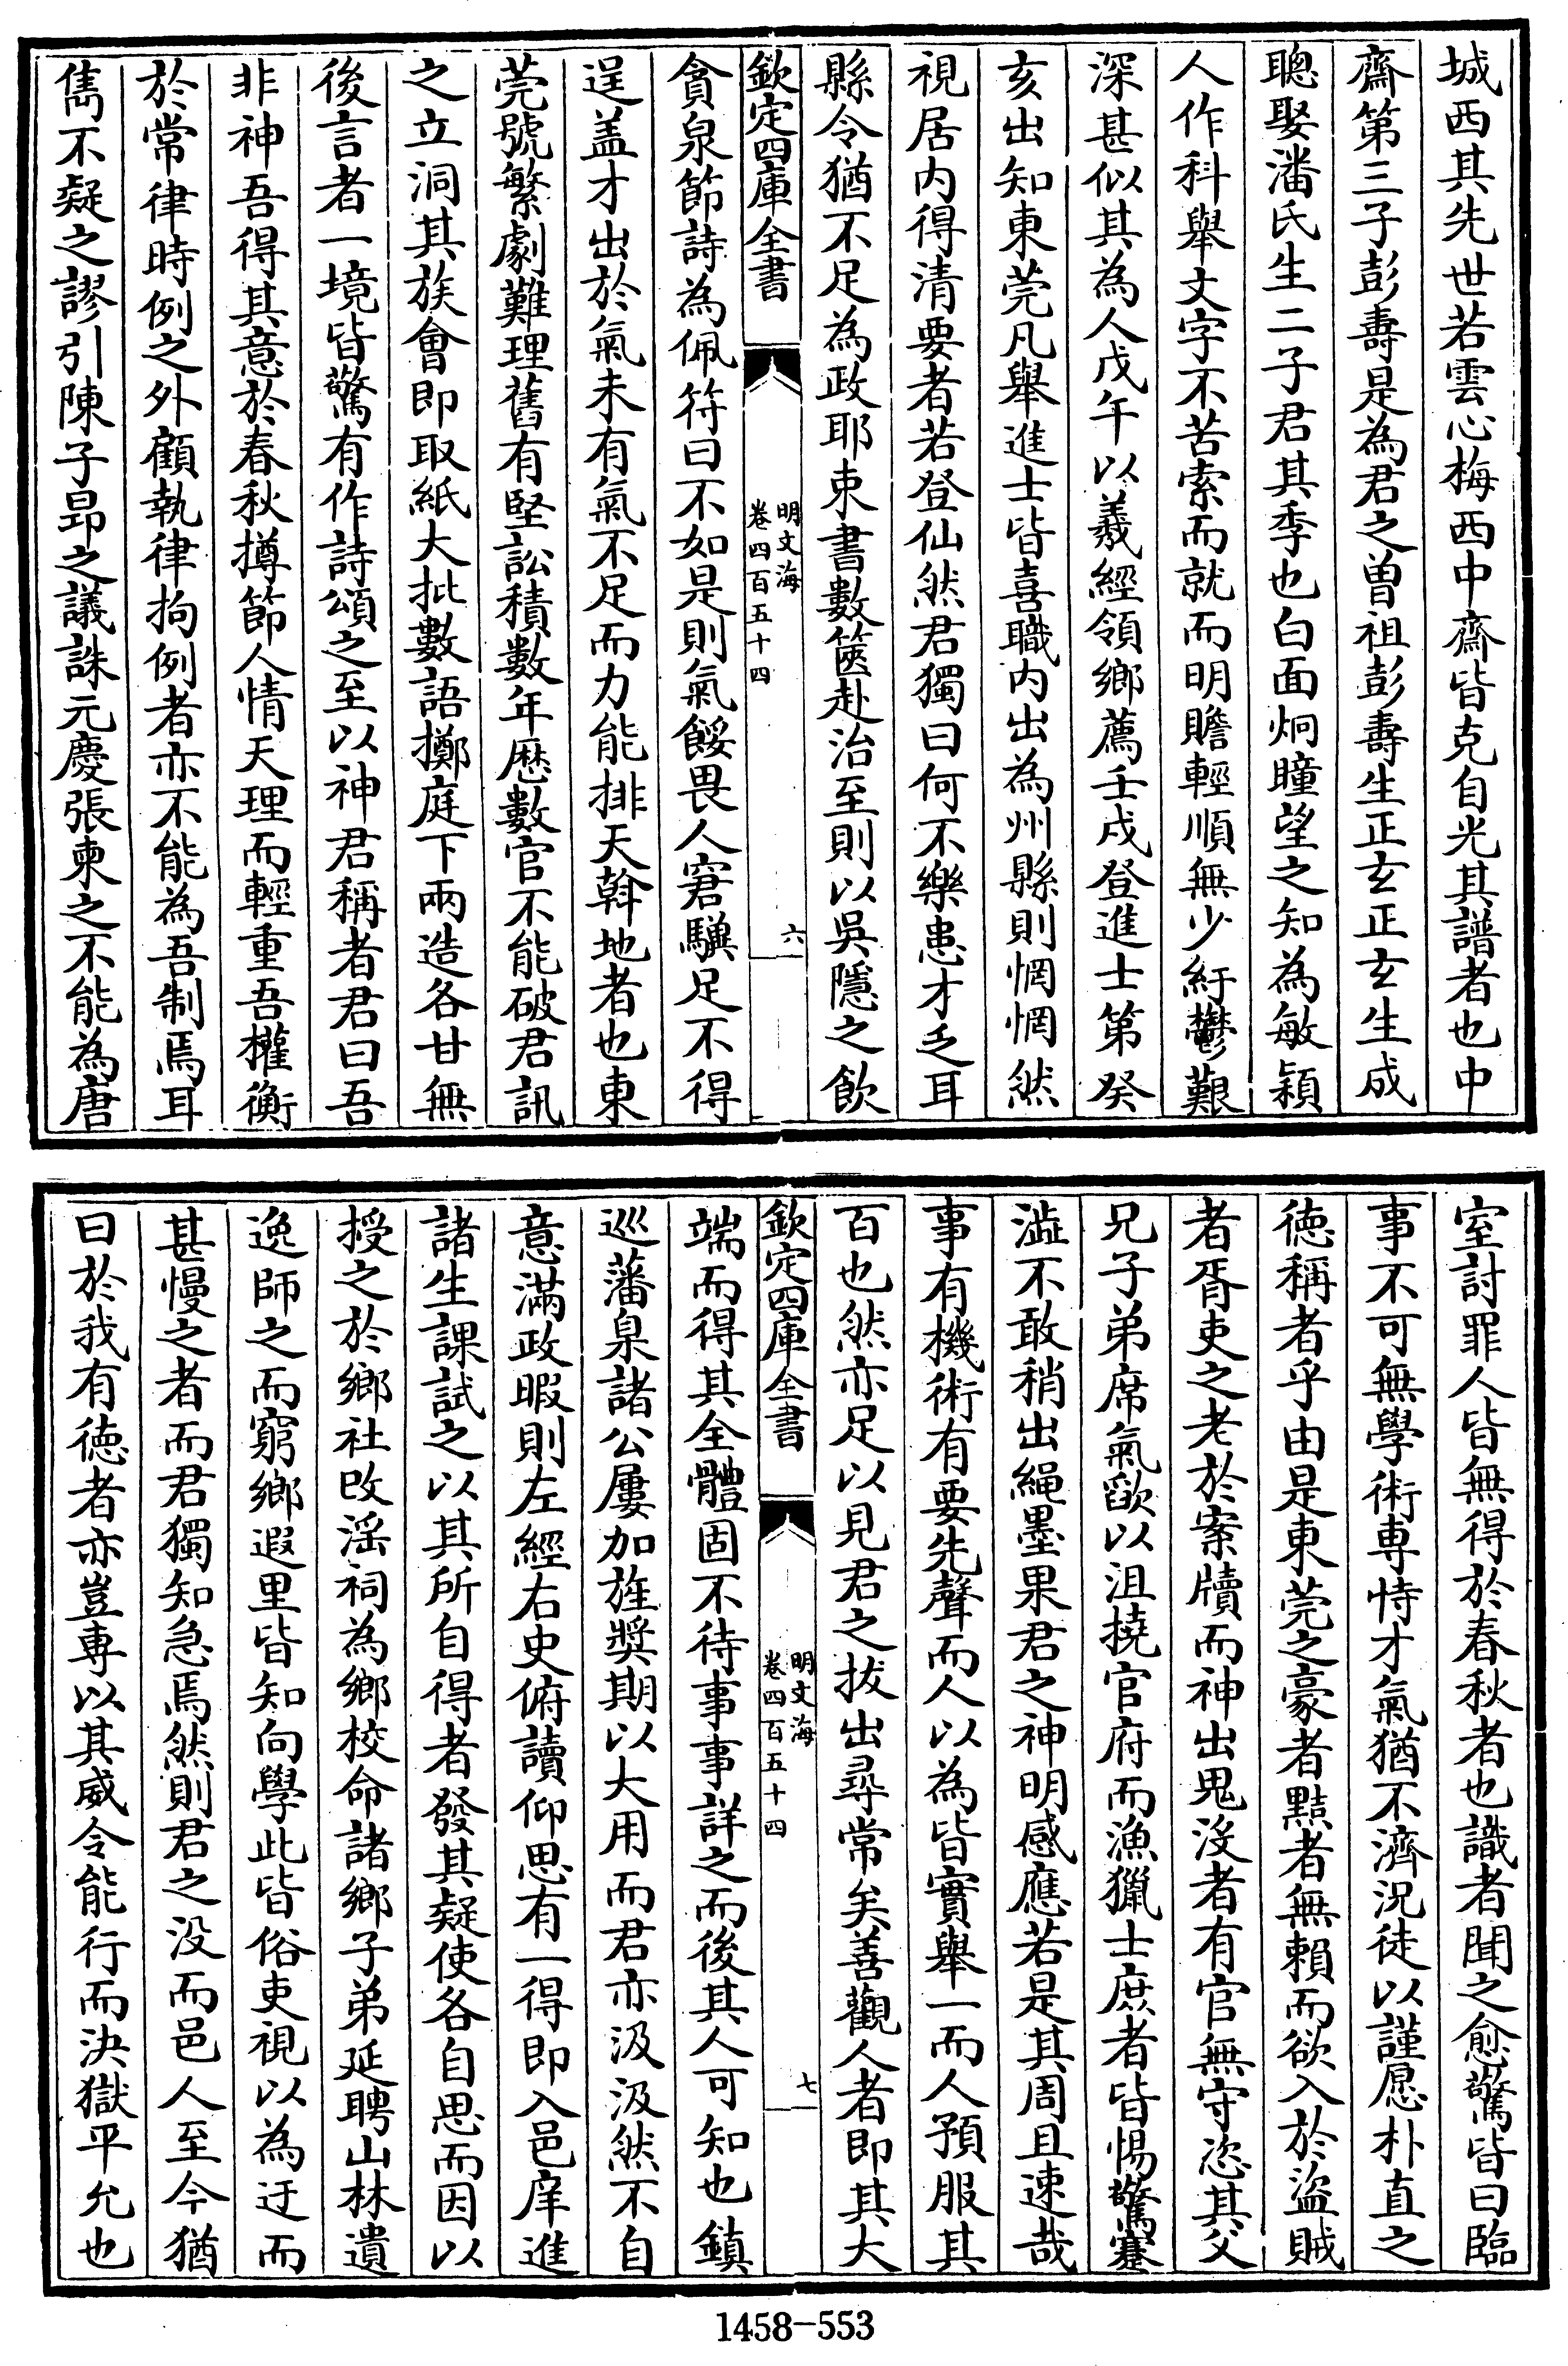 城西其先世若雲心梅西中齋皆克自光其譜者也中
齋第三子彭壽是為君之曾祖彭壽生正玄正玄生成
聰娶潘氏生二子君其季也白面炯瞳望之知為敏穎
人作科舉文字不苦索而就而明贍輕順無少紆鬱艱
深甚似其為人戊午以羲經領鄉薦壬戌登進士第癸
亥出知東莞凡舉進士皆喜職内出為州縣則惘惘然
視居内得清要者若登仙然君獨曰何不樂患才乏耳
縣令猶不足為政耶束書數篋赴治至則以吳隱之飲
欽定四庫全書
明文海
卷四百五十四
六
貪泉節詩為佩符曰不如是則氣餒畏人窘驥足不得
逞盖才出於氣未有氣不足而力能排天斡地者也東
莞號繁劇難理舊有堅訟積數年歷數官不能破君訊
之立洞其族會即取紙大批數語擲庭下兩造各甘無
後言者一境皆驚有作詩頌之至以神君稱者君曰吾
非神吾得其意於春秋撙節人情天理而輕重吾權衡
於常律時例之外顧執律拘例者亦不能為吾制焉耳
雋不疑之謬引陳子昂之議誅元慶張柬之不能為唐
室討罪人皆無得於春秋者也識者聞之愈驚皆曰臨
事不可無學術専恃才氣猶不濟況徒以謹愿朴直之
徳稱者乎由是東莞之豪者黠者無賴而欲入於盜賊
者胥吏之老於案牘而神出鬼沒者有官無守恣其父
兄子弟席氣歘以沮撓官府而漁獵士庶者皆惕驚蹇
澁不敢稍出繩墨果君之神明感應若是其周且速哉
事有機術有要先聲而人以為皆實舉一而人預服其
百也然亦足以見君之拔出尋常矣善觀人者即其大
欽定四庫全書
明文海
卷四百五十四
七
端而得其全體固不待事事詳之而後其人可知也鎮
巡藩臬諸公屢加旌奬期以大用而君亦汲汲然不自
意滿政暇則左經右史俯讀仰思有一得即入邑庠進
諸生課試之以其所自得者發其疑使各自思而因以
授之於鄉社改淫祠為鄉校命諸鄉子弟延聘山林遺
逸師之而窮鄉遐里皆知向學此皆俗吏視以為迂而
甚慢之者而君獨知急焉然則君之没而邑人至今猶
曰於我有徳者亦豈専以其威令能行而決獄平允也
1458-553